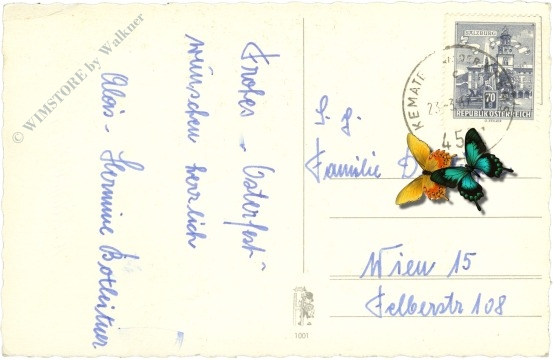 © WIMSTORE by Walkner
Frohes Osterfest
wünschen herzlich
Alois - Hermine
SALZBURG
70
REPUBLIK ÖSTERREICH
KEMATE
23.-3.
45
S. g.
Familie
Wien 15
Felberstr 108
1001